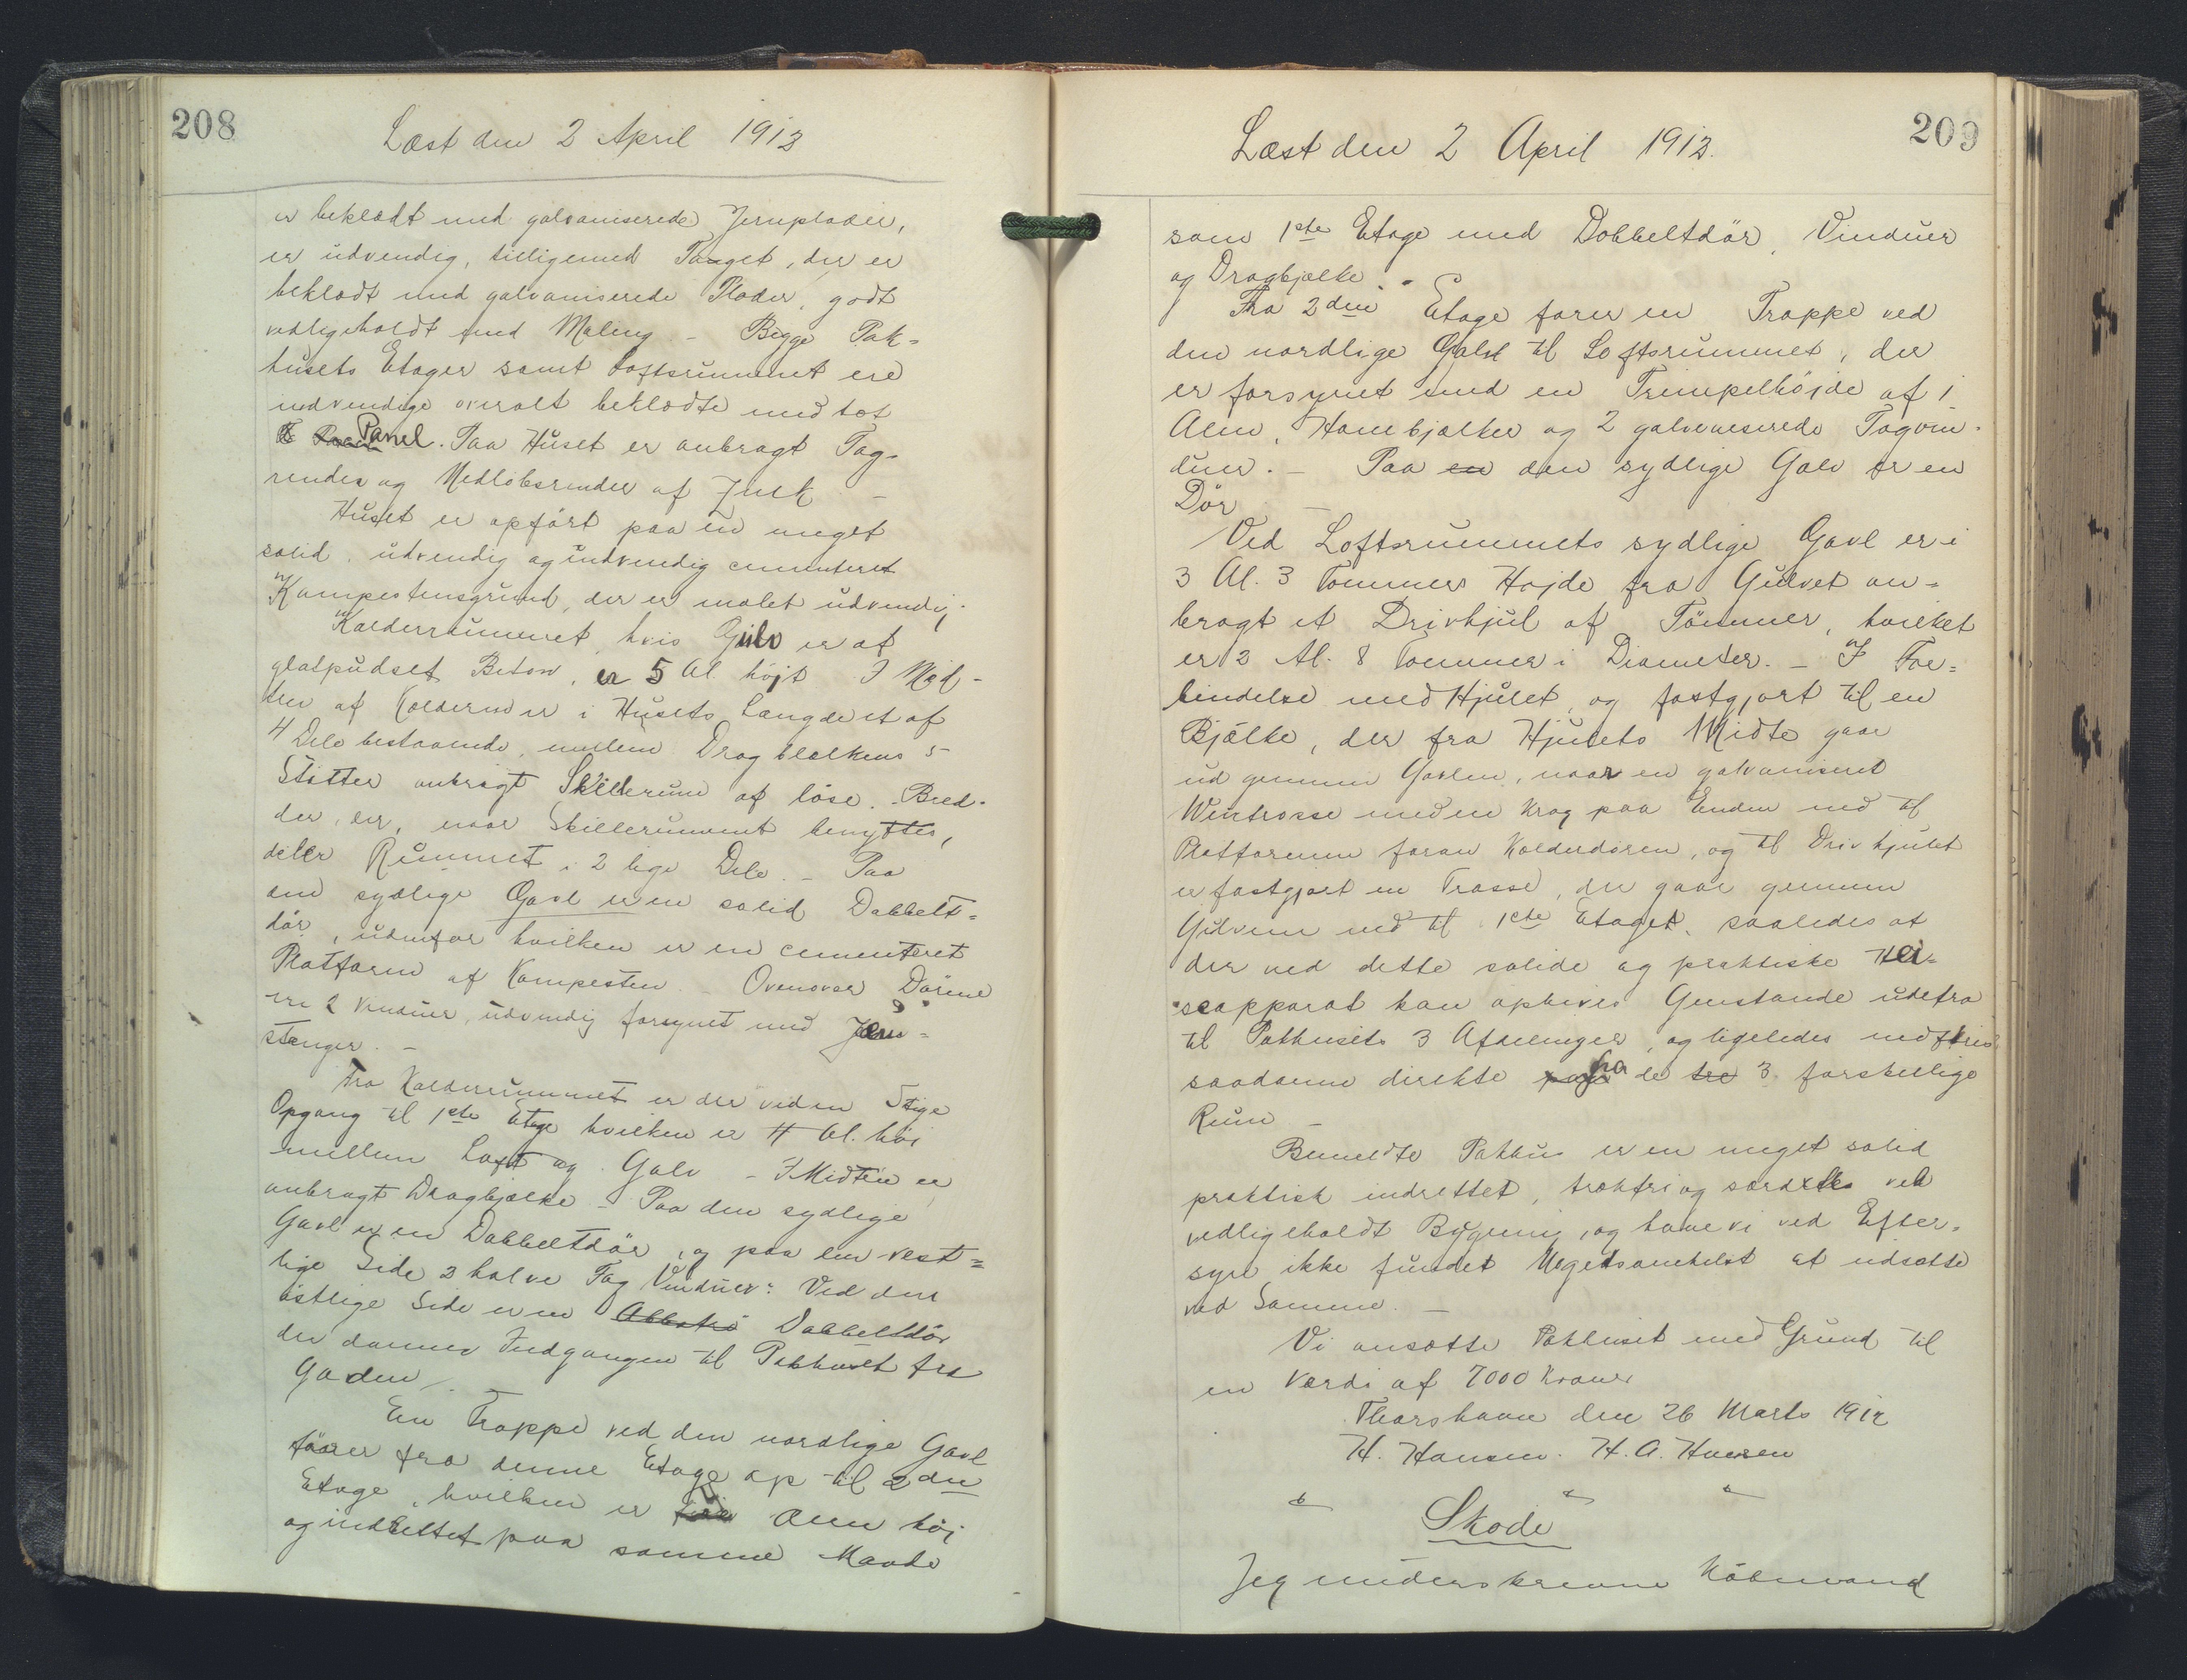 208
Læst den 2 April 1913
er beklædt med galvaniserede Jernplader,
er udvendig, tilligemed Taget, der er
beklædt med galvaniserede Plader, godt
vedligeholdt med Maling – Begge Pak=
husets Etager samt Loftsrummet ere
indvendige overalt beklædte med tæt
Panel. Paa Huset er anbragt Tag-
render og Nedløbsrender af Zink –
Huset er opført paa en meget
solid, udvendig og indvendig cementeret
Kampestensgrund, der er malet udvendig.
Kælderrummet, hvis Gulv er af
glatpudset Beton, er 5 Al. højt I Mid-
ten af Kælderen er i Husets Længde et af
4 Dele bestaaende, mellem Dragbjælkens 5
Støtter anbragt Skillerum af løse Bræd-
der, der, naar Skillerummet benyttes,
deler Rummet i 2 lige Dele. – Paa
den sydlige Gavl er en solid Dobbelt=
dør, udenfor hvilken er en cementeret
Platform af Kampesten. – Ovenover Dørene
ere 2 Vinduer, udvendig forsynet med Jern=
stænger. –
Fra Kælderrummet er der ved en Stige
Opgang til 1ste Etage hvilken er 4 Al. høi
mellem Loft og Gulv – I Midten er
anbragt Dragbjælke – Paa den sydlige
Gavl er en Dobbeltdør, og paa den vest=
lige Side 2 halve Fag Vinduer: Ved den
østlige Side er en Dobbeltdør
der danner Indgangen til Pakhuset fra
Gaden.
En Trappe ved den nordlige Gavl
fører fra denne Etage op til 2den
Etage, hvilken er Alen høi
og indrettet paa samme Maade
209
Læst den 2 April 1913.
som 1ste Etage med Dobbeltdør, Vinduer
og Dragbjælke.
Fra 2den Etage fører en Trappe ved
den nordlige Gavl til Loftsrummet, der
er forsynet med en Trempelhöjde af 1
Alen, Hanebjælker og 2 galvaniserede Tagvin-
duer. – Paa en den sydlige Gavl er en
Dör –
Ved Loftsrummets sydlige Gavl er i
3 Al. 3 Tommers Højde fra Gulvet an=
bragt et Drivhjul af Tömmer, hvilket
er 2 Al. 8 Tommer i Diameter. – I For=
bindelse med Hjulet, og fastgjort til en
Bjælke, der fra Hjulets Midte gaar
ud gennem Gavlen, naar en galvaniseret
Wiretrosse med en Krog paa Enden ned til
Platformen foran Kælderdøren, og til Drivhjulet
er fastgjort en Trosse, der gaar gennem
Gulvene ned til 1ste Etage, saaledes at
der ved dette solide og praktiske Hei=
seapparat kan ophives Genstande udefra
til Pakhusets 3 Afdelinger, og ligeledes nedfires
saadanne direkte fra de tre 3 forskellige
Rum –
Bemeldte Pakhus er en meget solid
praktisk indrettet, trækfri og særdeles vel
vedligeholdt Bygning, og have vi ved Efter=
syn ikke fundet Nogetsomhelst at udsætte
ved Samme. –
Vi ansætte Pakhuset med Grund til
en Værdi af 7000 Kroner
Thorshavn den 26 Marts 1912
H. Hansen. H. A. Hansen
Skøde
Jeg underskrevne Købmand